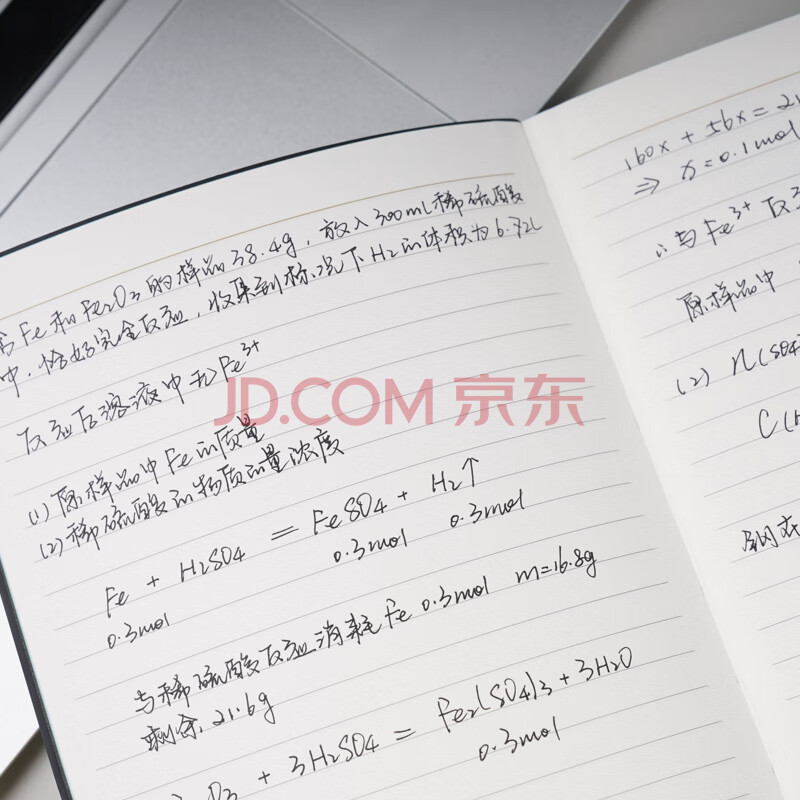 含Fe和Fe2O3的样品38.4g,放入300ml稀硫酸
中,恰好完全反应,收集到标况下H2的体积为6.72L
反应后溶液中无Fe3+
(1)原样品中Fe的质量
(2)稀硫酸的物质的量浓度
Fe + H2SO4 = FeSO4 + H2↑
0.3mol 0.3mol 0.3mol
与稀硫酸反应消耗Fe 0.3mol m=16.8g
剩余21.6g
O3 + 3H2SO4 = Fe2(SO4)3 + 3H2O
0.3mol
160x + 56x = 21
⇒ x=0.1mol
∴与Fe3+反
原样品中
(2) n(SO4
C(H
JD.COM 京东